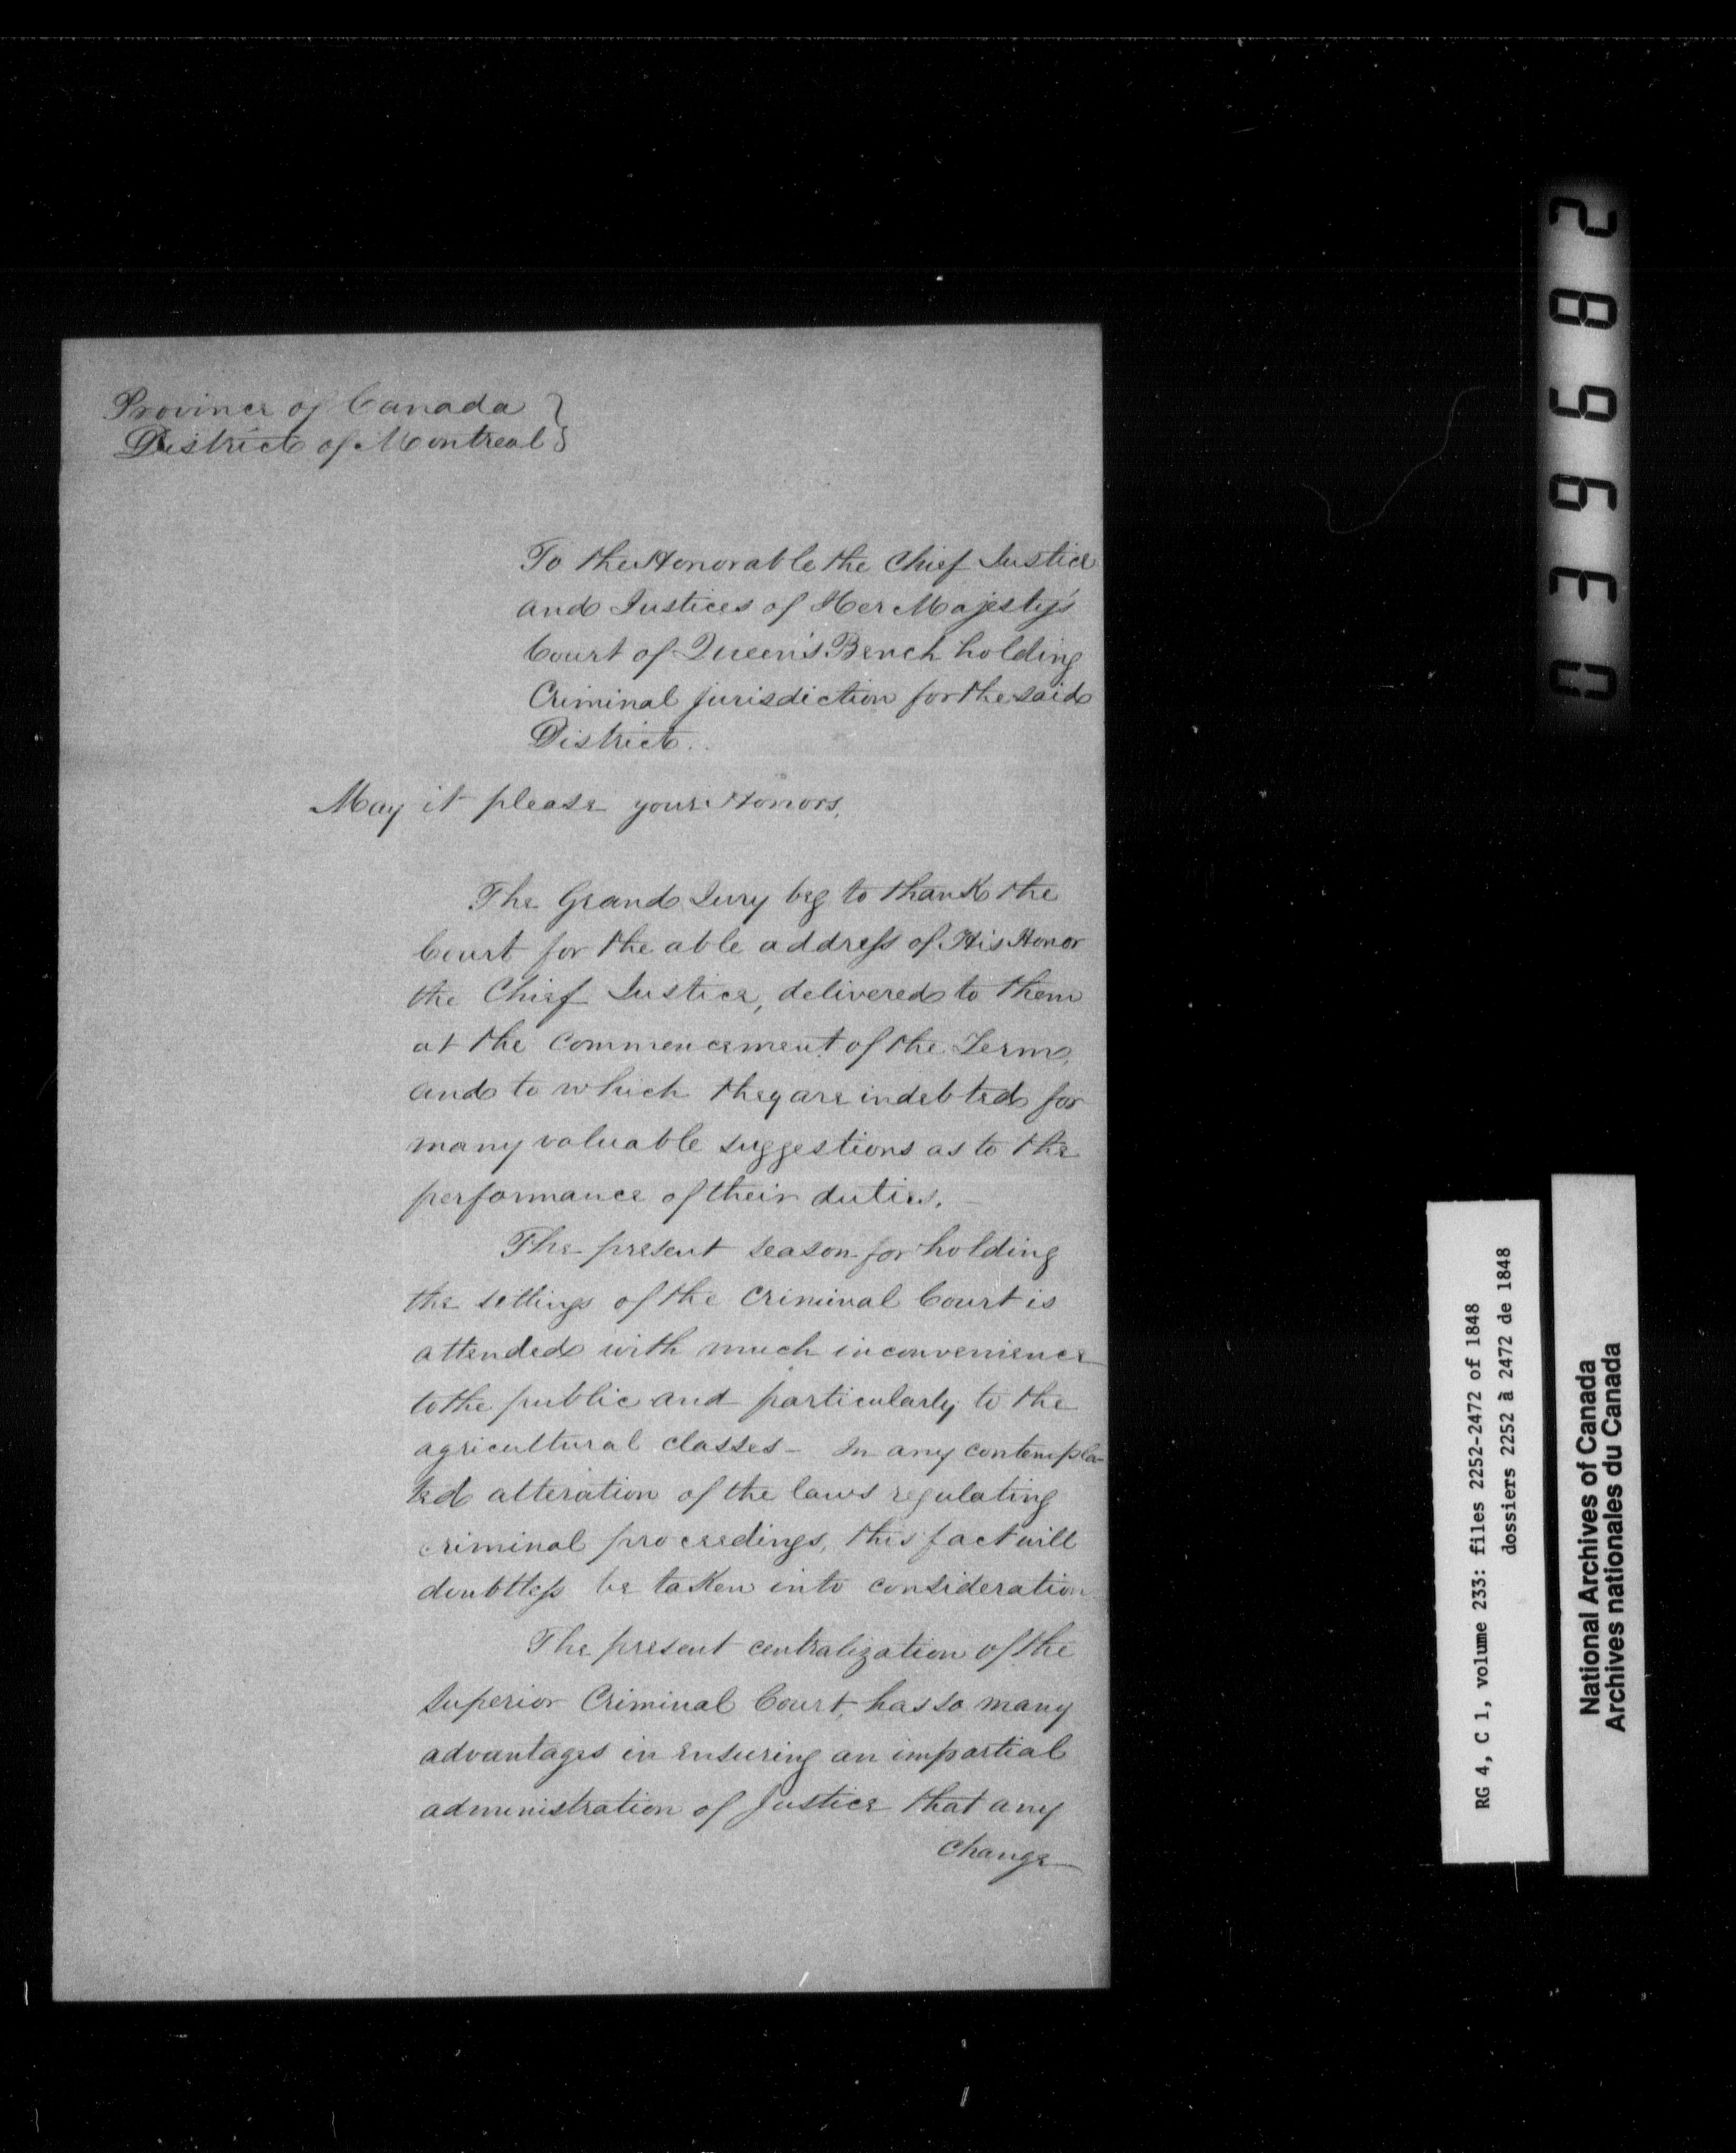 Province of Canada }
District of Montreal }
To the Honorable the Chief Justice
and Justices of Her Majesty's
Court of Queen's Bench holding
Criminal jurisdiction for the said
District.
May it please your Honors,
The Grand Jury beg to thank the
Court for the able address of His Honor
the Chief Justice, delivered to them
at the Commencement of the Term,
and to which they are indebted for
many valuable suggestions as to the
performance of their duties. —
The present season for holding
the settings of the Criminal Court is
attended with much inconvenience
to the public and particularly to the
agricultural classes — In any contempla-
ted alteration of the laws regulating
criminal proceedings, this fact will
doubtless be taken into consideration
The present centralization of the
Superior Criminal Court, has so many
advantages in ensuring an impartial
administration of Justice that any
change
039682
RG 4, C 1, volume 233: files 2252-2472 of 1848
dossiers 2252 à 2472 de 1848
National Archives of Canada
Archives nationales du Canada